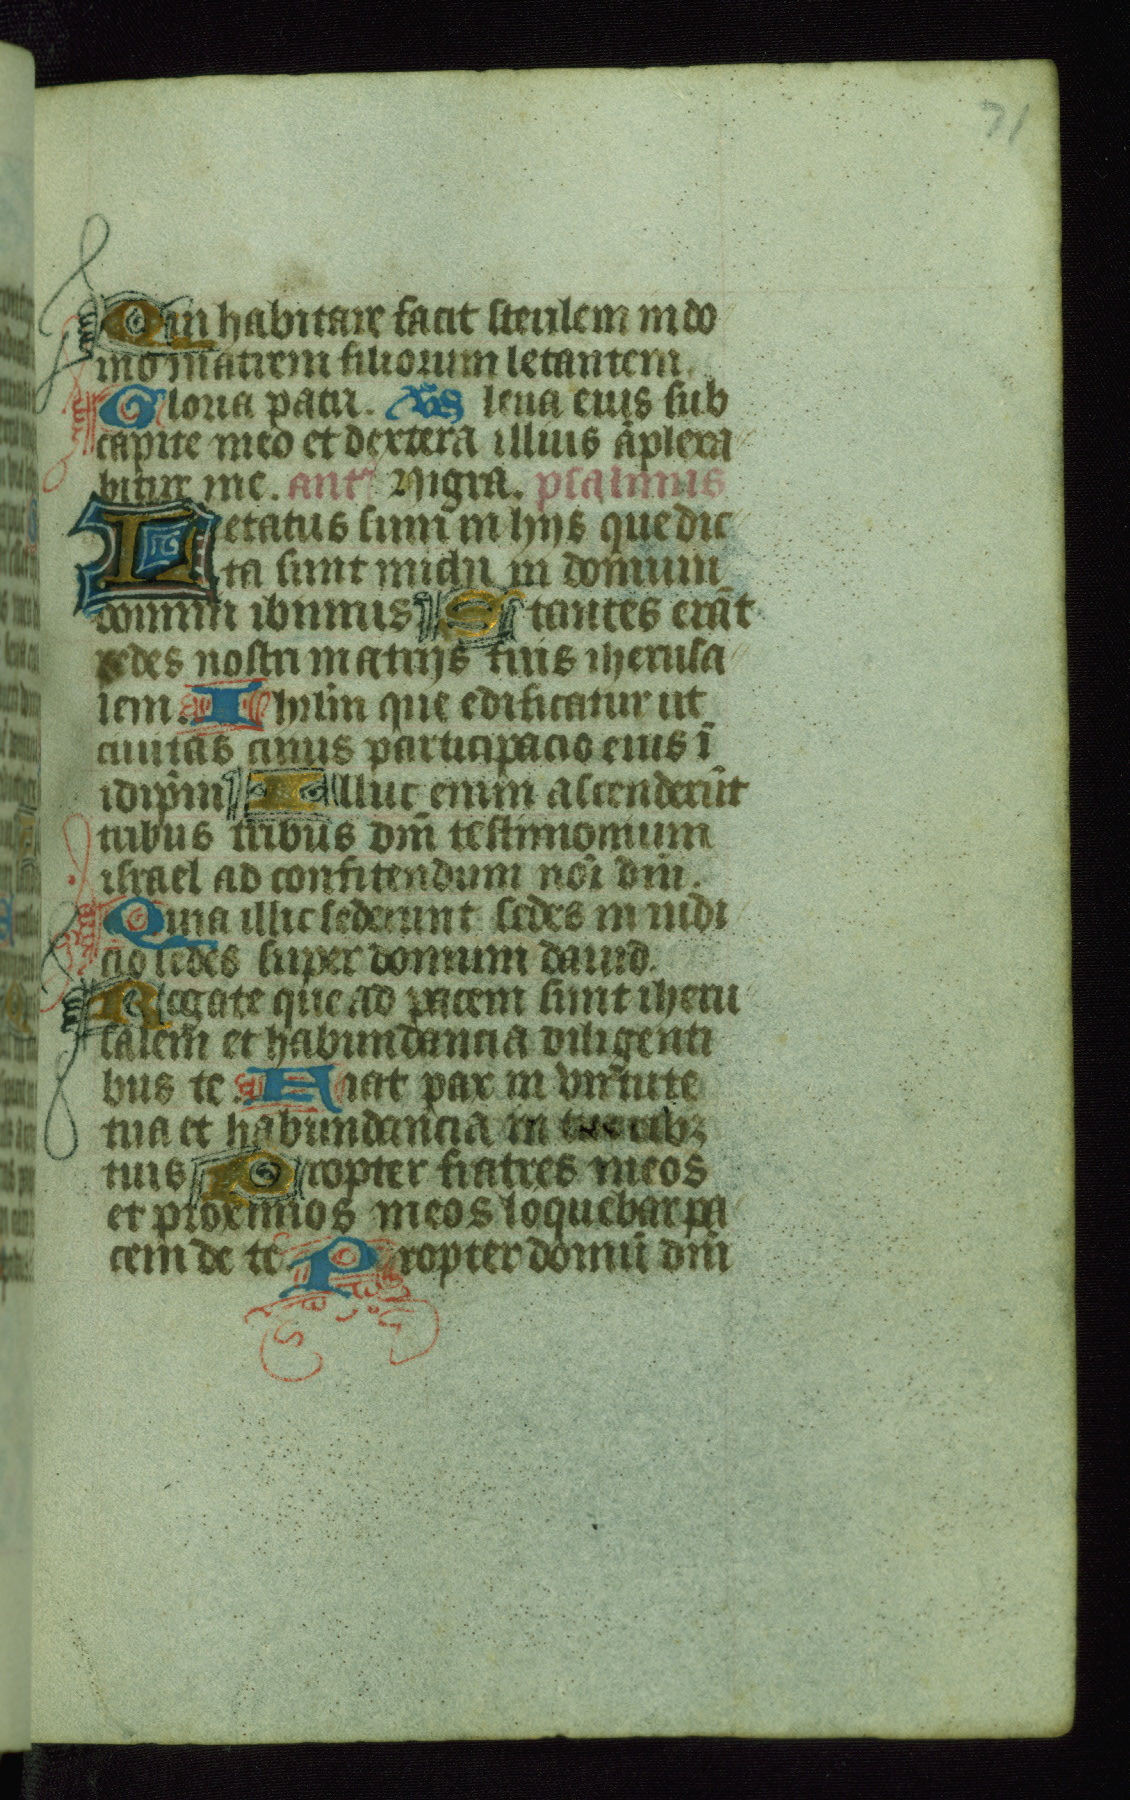 71
Qui habitare facit sterilem in do
mo matrem filiorum letantem.
Gloria patri. leua eius sub
capite meo et dextera illius āplexa
bitur me. ant Nigra. psalmus
Letatus sum in hijs que dic
ta sunt michi in domum
domini ibimus Stantes erāt
pedes nostri in atrijs tuis iherusa
lem. Ihrlm que edificatur ut
ciuitas cuius participacio eius ī
idipm̄ Illuc enim ascenderūt
tribus tribus dm̄i testimonium
israel ad confitendum noī dm̄i.
Quia illic sederunt sedes in iudi
cio sedes super domum dauid.
Rogate que ad pacem sunt iheru
salem et habundancia diligenti
bus te. Fiat pax in virtute
tua et habundancia in turribꝫ
tuis Propter fratres meos
et proximos meos loquebar pa
cem de te Propter domū dm̄i